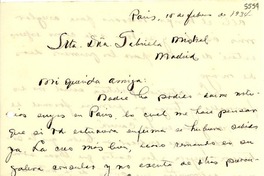 5559
Paris, 18 de febrero de 1934
Srta. Dña. Gabriela Mistral
Madrid
Mi querida amiga:
Nadie ha podido darme noti-
cias suyas en Paris, lo cual me hace pensar
que si Ud estuviera enferma se hubiera sabido
ya. La creo mas bien, como romando en su
consular y no exenta de